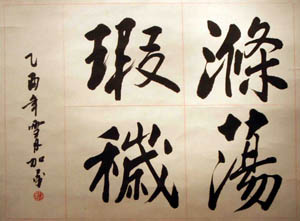 滌蕩
瑕穢
乙酉年雪月